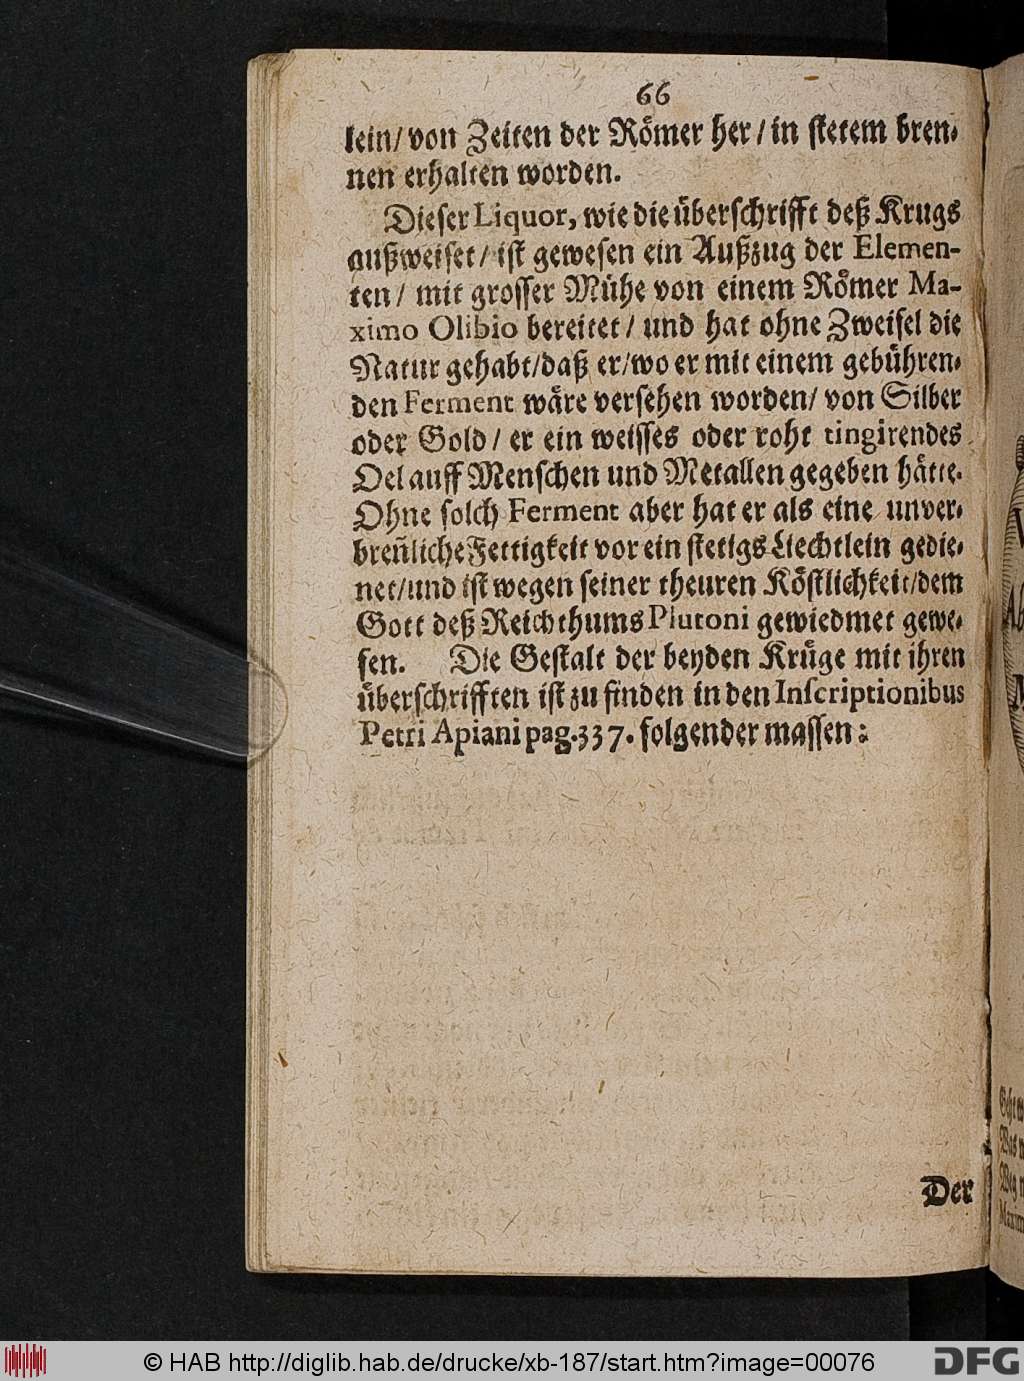 66
lein/ von Zeiten der Römer her / in stetem bren-
nen erhalten worden.
Dieser Liquor, wie die überschrifft deß Krugs
außweiset / ist gewesen ein Außzug der Elemen-
ten / mit grosser Mühe von einem Römer Ma-
ximo Olibio bereitet / und hat ohne Zweifel die
Natur gehabt/daß er/wo er mit einem gebühren-
den Ferment wäre versehen worden/ von Silber
oder Gold / er ein weisses oder roht tingirendes
Oel auff Menschen und Metallen gegeben hätte.
Ohne solch Ferment aber hat er als eine unver-
breñliche Fettigkeit vor ein stetigs Liechtlein gedie-
net/und ist wegen seiner theuren Köstlichkeit/dem
Gott deß Reichthums Plutoni gewiedmet gewe-
sen. Die Gestalt der beyden Krüge mit ihren
überschrifften ist zu finden in den Inscriptionibus
Petri Apiani pag. 337. folgender massen:
Der
© HAB http://diglib.hab.de/drucke/xb-187/start.htm?image=00076
DFG